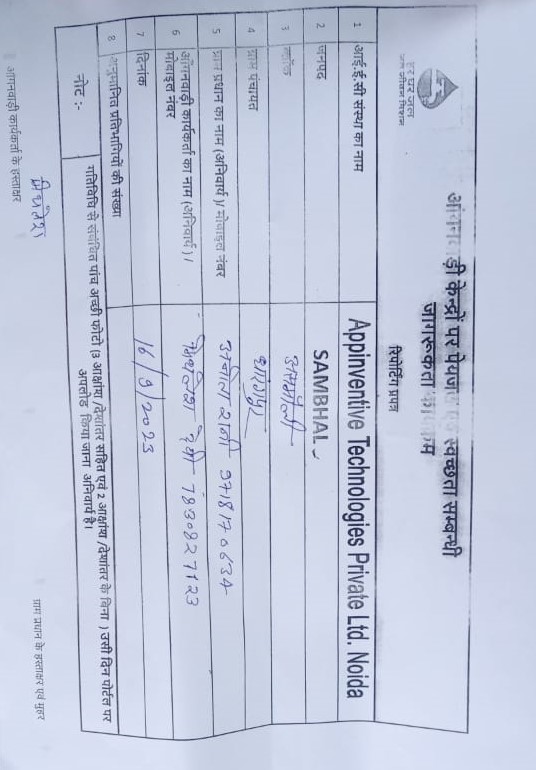 हर घर जल
जल जीवन मिशन
आंगनवाड़ी केन्द्रों पर पेयजल एवं स्वच्छता सम्बन्धी
जागरुकता कार्यक्रम
रिपोर्टिंग प्रपत्र
1 आई.ई.सी संस्था का नाम Appinventive Technologies Private Ltd. Noida
2 जनपद SAMBHAL
3 ब्लॉक असमोली
4 ग्राम पंचायत
5 ग्राम प्रधान का नाम (अनिवार्य )/ मोबाइल नंबर 9718170634
6 आँगनवाड़ी कार्यकर्ता का नाम (अनिवार्य ) / देवी 7830827123
मोबाइल नंबर
7 दिनांक 16/9/2023
8 अनुमानित प्रतिभागियों की संख्या
नोट :- गतिविधि से संबंधित पांच अच्छी फोटो (3 अक्षांश /देशांतर सहित एवं 2 अक्षांश /देशांतर के बिना ) उसी दिन पोर्टल पर
अपलोड किया जाना अनिवार्य है।
आगनवाड़ी कार्यकर्ता के हस्ताक्षर ग्राम प्रधान के हस्ताक्षर एवं मुहर